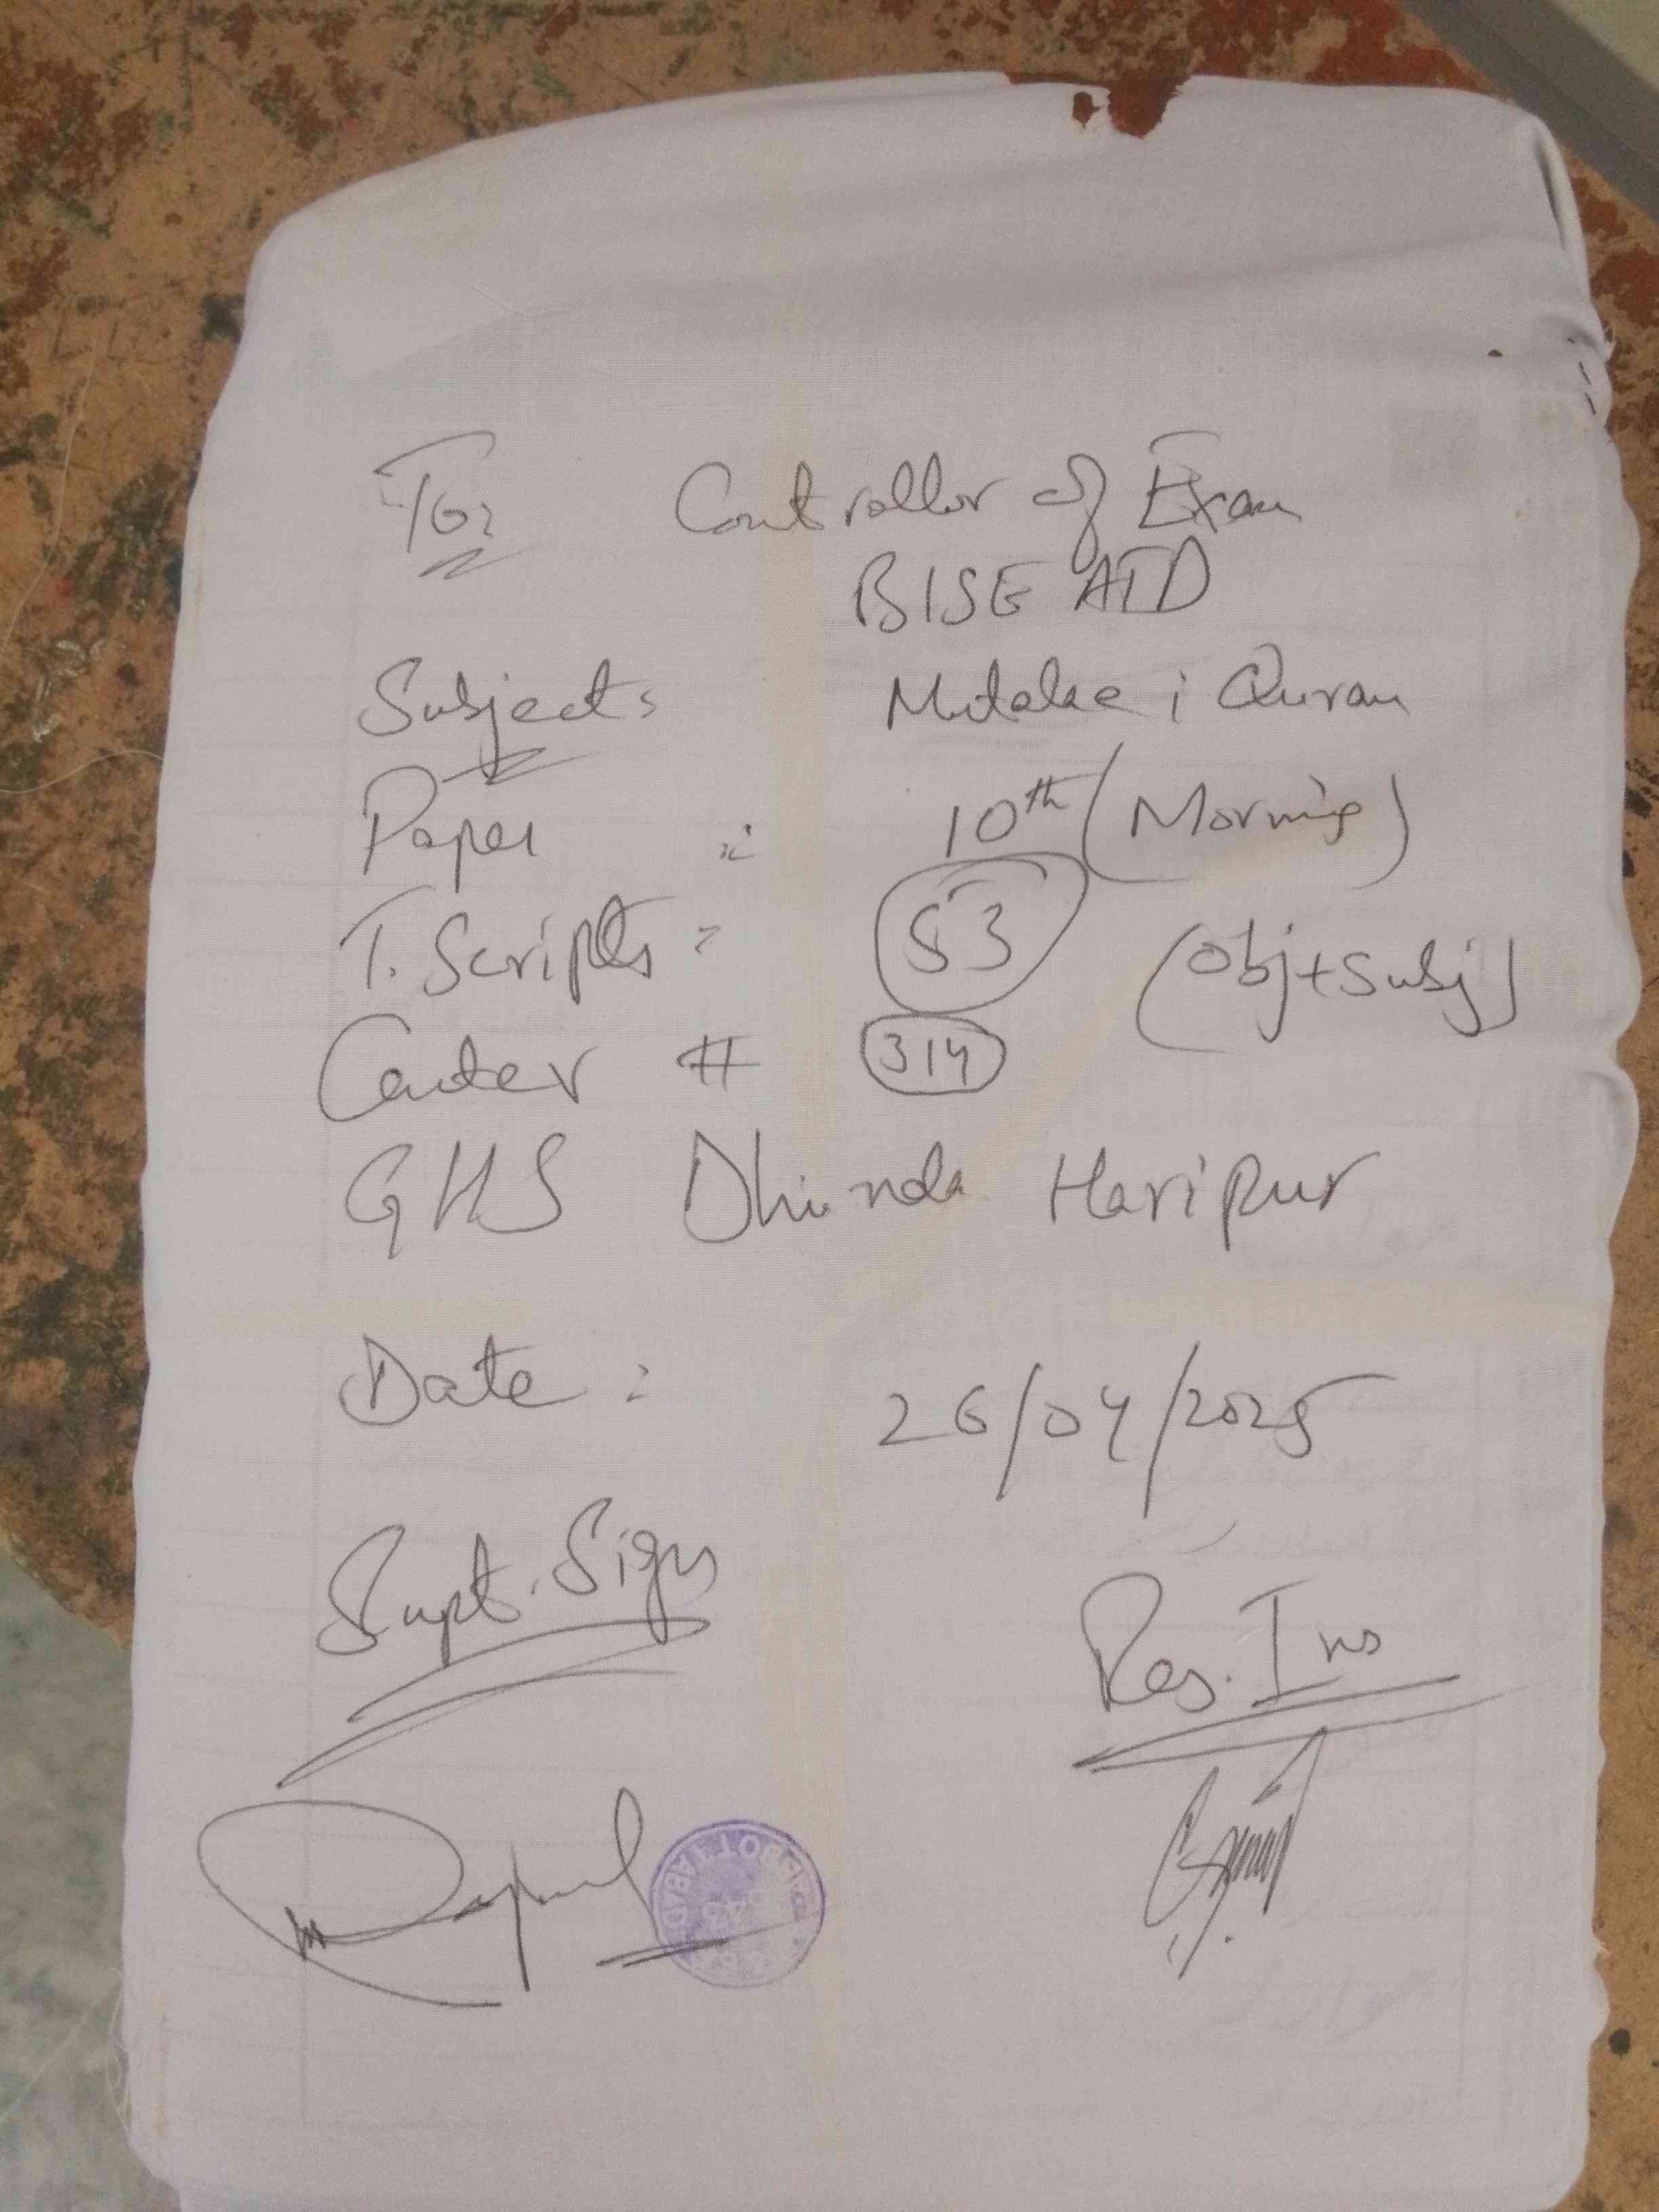 To: Controller of Exam
BISE ATD
Subject: Mutalae i Quran
Paper : 10th (Morning)
T. Scripts : 53 (Obj+Subj)
Center # 314
GHS Dhinda Haripur
Date : 26/04/2025
Supt. Sign
Res. Ins
ABBOTTABAD